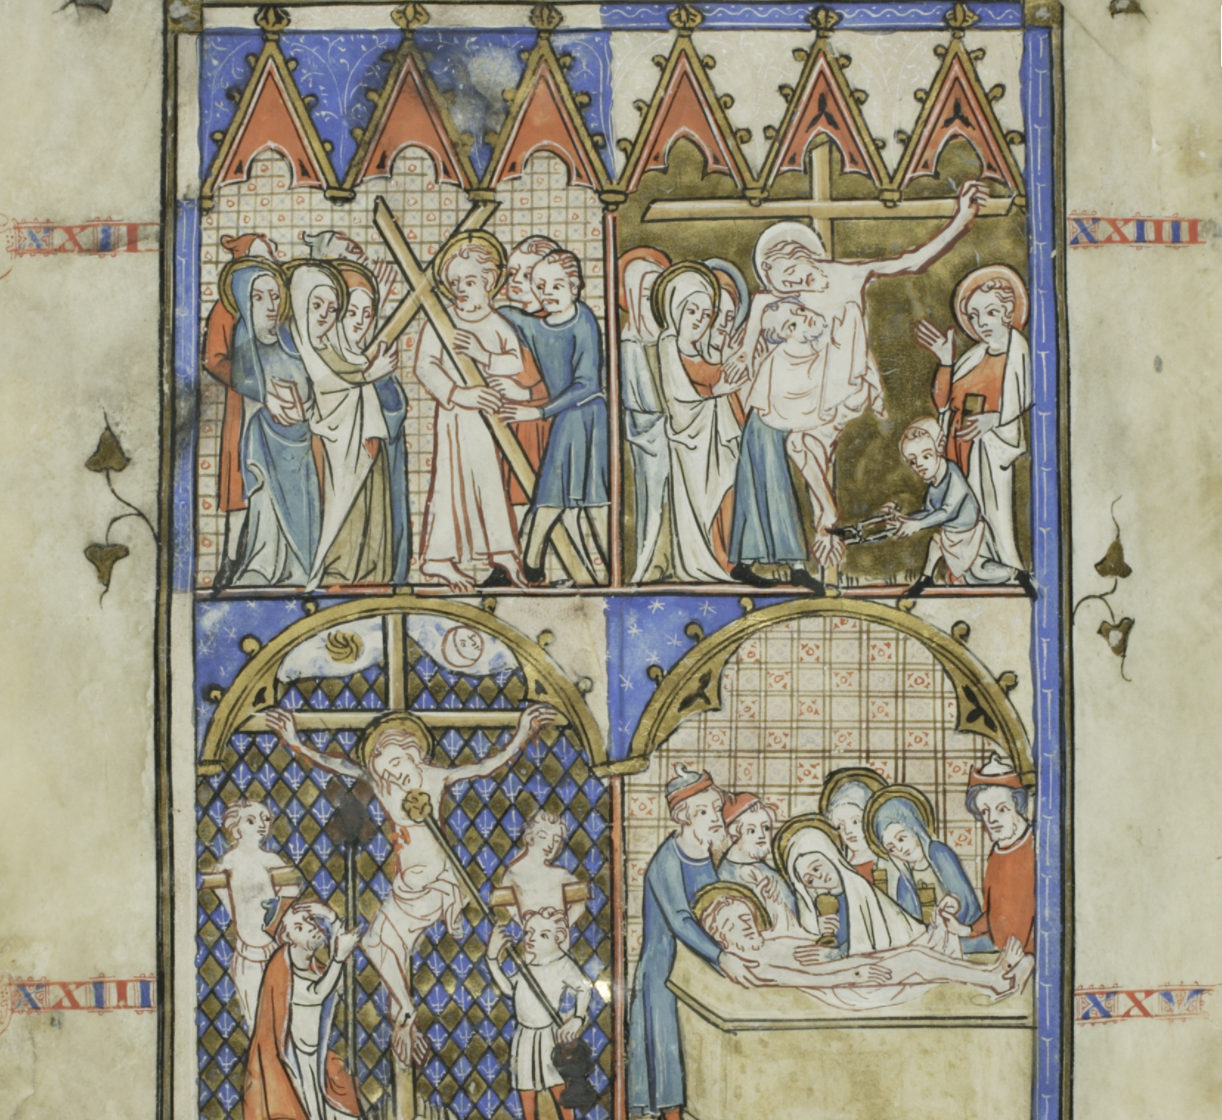 XXII
XXIIII
XXIII
XXV